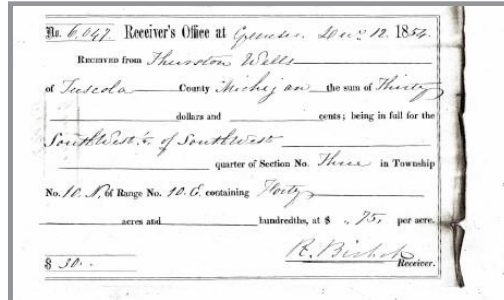 No. 6,047 Receiver's Office at Genesee Decr 12 1854.
RECEIVED from Thurston Wells
of Tuscola County Michigan the sum of Thirty
dollars and cents; being in full for the
SouthWest ¼ of SouthWest
quarter of Section No. Three in Township
No. 10. N. of Range No. 10. E. containing Forty
acres and hundredths, at $ .75, per acre.
$ 30.. R. Bishop Receiver.